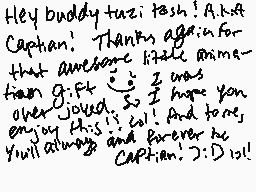 Hey buddy tuzi tosh! A.K.A
Captian! Thanks again for
that awesome little anima-
tion gift I was
over joyed. So I hope you
enjoy this!! lol! And to me,
You'll always and forever be
Captian! J:D lol!